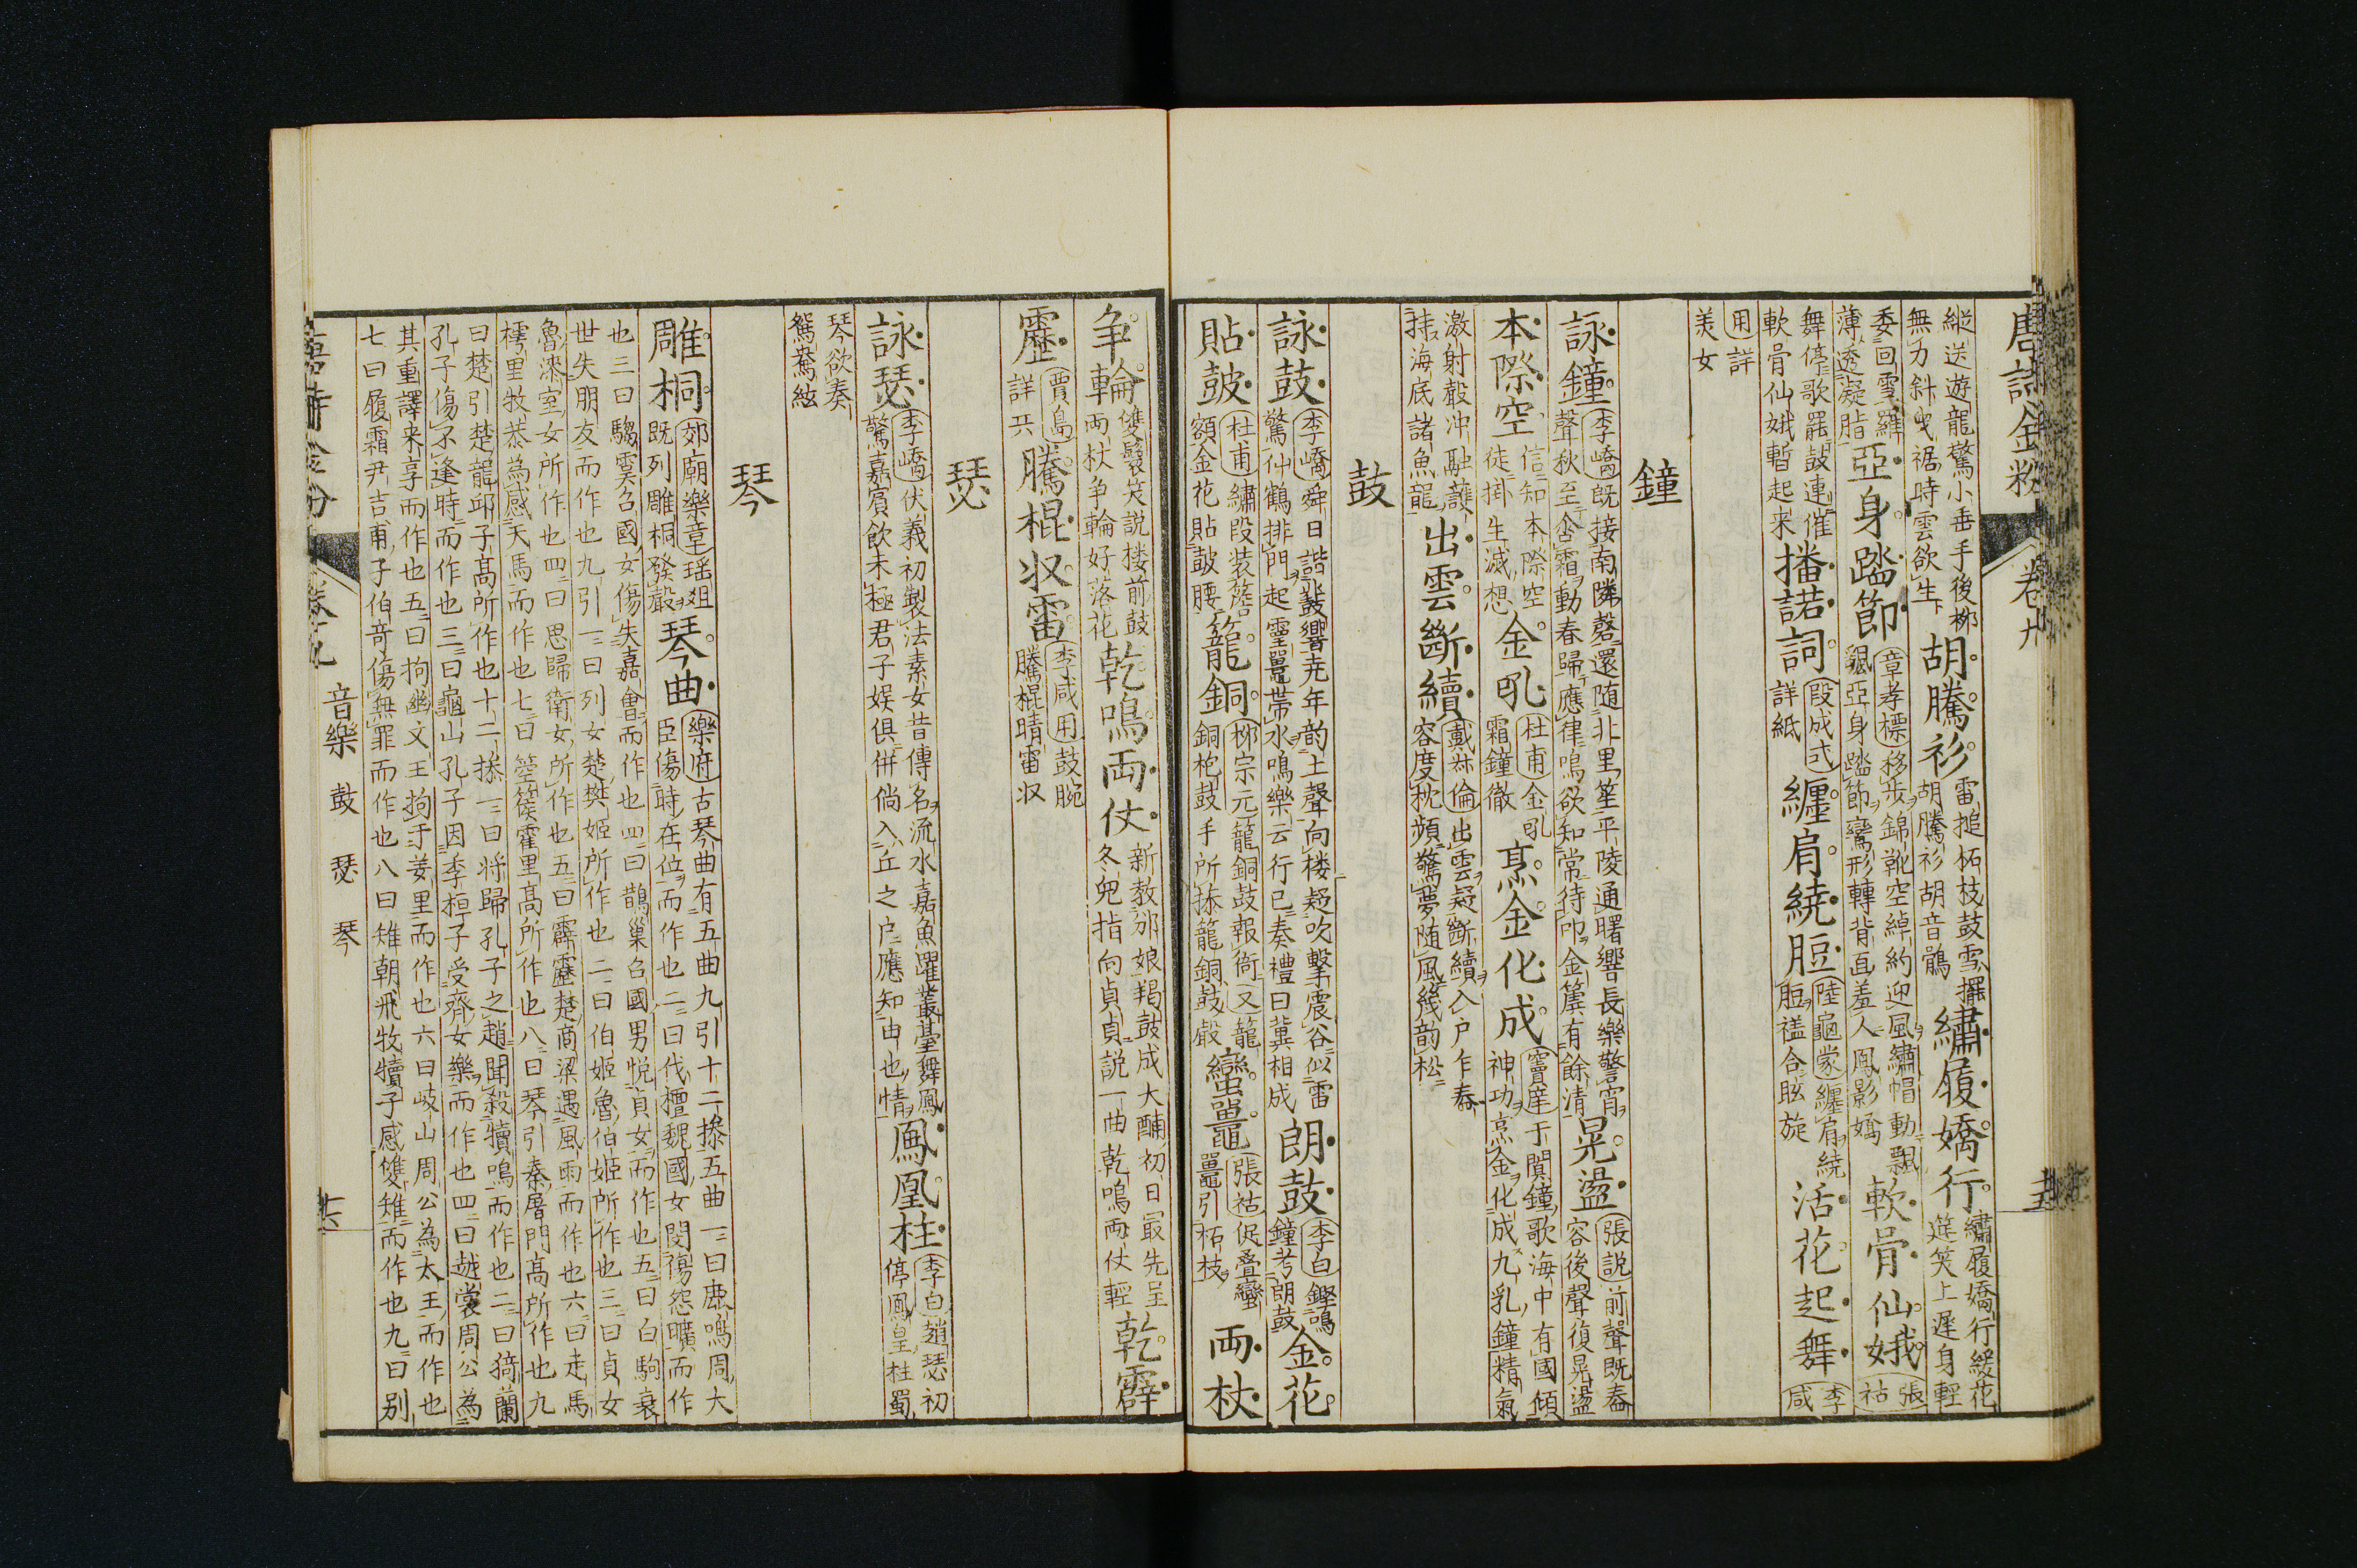 唐詩金粉 卷九
縱送遊龍驚小垂手後柳
無力斜曳裾時雲欲生
胡騰衫
雷搥柘枝鼓雪擺
胡騰衫胡音鶻
繡履嬌行
繡履嬌行緩花
筵笑上遲身輕
委回雪羅
薄透凝脂
亞身踏節
章孝標移步錦靴空綽約迎風繡帽動飄
颻亞身踏節鸞形轉背面羞人鳳影嬌
軟骨仙娥
張
祜
舞停歌罷鼓連催
軟骨仙娥暫起来
播諾詞
段成式
詳紙
纏肩繞脰
陸龜蒙纏肩繞
脰襠合眩旋
活花起舞
李
咸
用詳
美女
鐘
詠鐘
李嶠既接南隣磬還随北里笙平陵通曙響長樂警宵
聲秋至含霜動春歸應律鳴欲知常待叩金簴有餘清
晃盪
張説前聲既舂
容後聲復晃盪
本際空
信知本際空
徒掛生滅想
金吼
杜甫金吼
霜鐘徹
烹金化成
竇庠于闐鐘歌海中有國傾
神功烹金化成九乳鐘精氣
激射聲冲融護
持海底諸魚龍
出雲斷續
戴叔倫出雲疑斷續入户乍舂
容度枕頻驚夢随風幾韵松
鼓
詠鼓
李嶠舜日諧鼗響尭年韵土聲向楼疑吹擊震谷似雷
驚仙鶴排門起靈鼉帯水鳴樂云行已奏禮曰冀相成
朗鼓
李白鏗鳴
鐘考朗鼓
金花
貼皷
杜甫繡段装簷
額金花貼皷腰
籠銅
柳宗元籠銅鼓報衙又籠
銅枹鼓手所操籠銅鼓聲
蠻鼉
張祜促叠蠻
鼉引柘枝
兩杖
争輪
雙鬟笑説楼前鼓
兩杖争輪好落花
乾鳴両仗
新教邠娘羯鼓成大酺初日最先呈
冬兒指向貞貞説一曲乾鳴両仗輕
乾霹
靂
賈島
詳兵
騰棍收雷
李咸用鼓腕
騰棍晴雷収
瑟
詠瑟
李嶠伏義初製法素女昔傳名流水嘉魚躍叢臺舞鳳
驚嘉賓飲未極君子娯俱併倘入丘之户應知由也情
鳳凰柱
李白趙瑟初
停鳳皇柱蜀
琴欲奏
鴛鴦絃
琴
雕桐
郊廟樂章瑶俎
既列雕桐發聲
琴曲
樂府古琴曲有五曲九引十二操五曲一曰鹿鳴周大
臣傷時在位而作也二曰伐檀魏國女閔傷怨曠而作
也三曰騶虞召國女傷失嘉會而作也四曰鵲巢召國男悦貞女而作也五曰白駒衰
世失朋友而作也九引一曰列女楚樊姬所作也二曰伯姬魯伯姬所作也三曰貞女
魯漆室女所作也四曰思歸衛女所作也五曰霹靂楚商梁遇風雨而作也六曰走馬
樗里牧恭為感天馬而作也七曰箜篌霍里高所作也八曰琴引秦屠門高所作也九
曰楚引楚龍邱子高所作也十二操一曰将歸孔子之趙聞殺犢鳴而作也二曰猗蘭
孔子傷不逢時而作也三曰龜山孔子因季桓子受齊女樂而作也四曰越裳周公為
其重譯来享而作也五曰拘幽文王拘于羑里而作也六曰岐山周公為太王而作也
七曰履霜尹吉甫子伯奇傷無罪而作也八曰雉朝飛牧犢子感雙雉而作也九曰别
卷九 音樂 鼓 瑟 琴